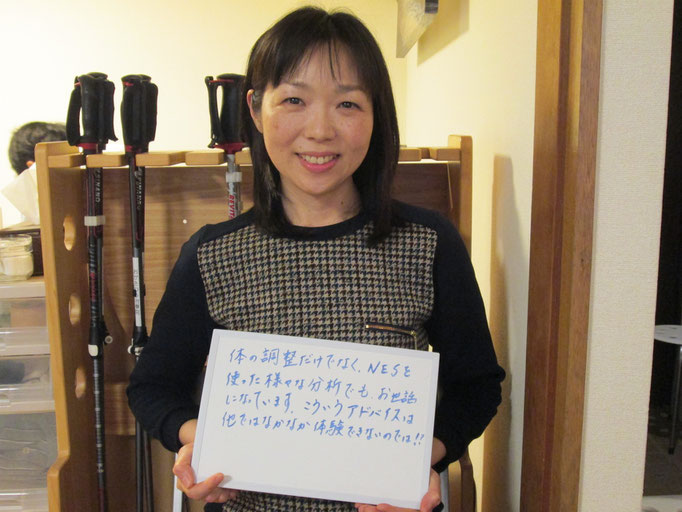 体の調整だけでなく、NESを
使った様々な分析でも、お世話
になっています。こういうアドバイスは
他ではなかなか体験できないのでは!!